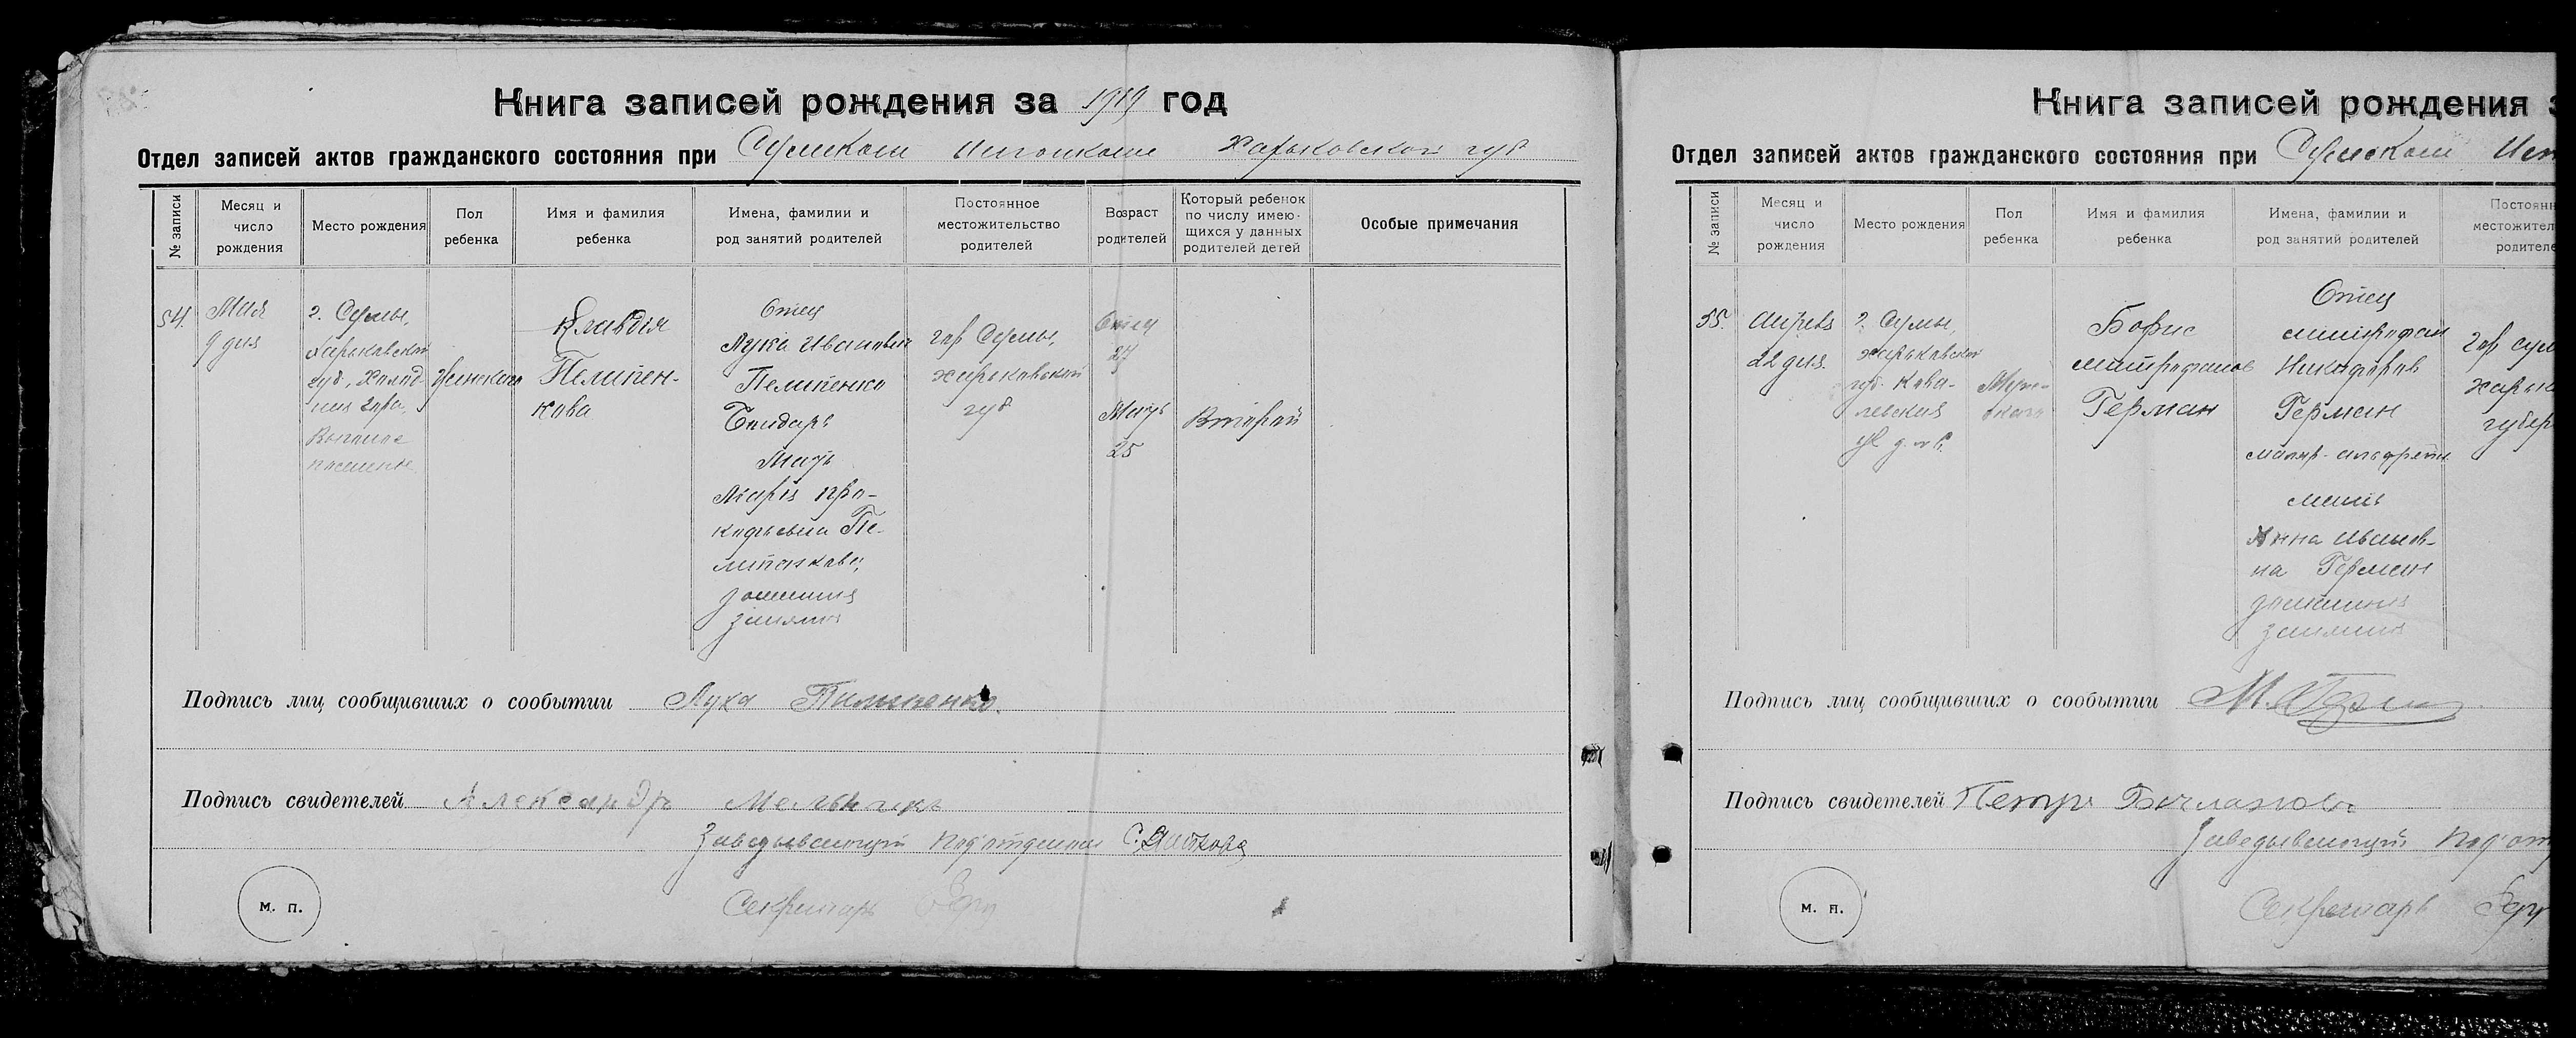 Книга записей рождения за 1919 год
Отдел записей актов гражданского состояния при Сумском Исполкоме Харьковской губ
№ записи
Месяц и число рождения
Место рождения
Пол ребенка
Имя и фамилия ребенка
Имена, фамилии и род занятий родителей
Постоянное местожительство родителей
Возраст родителей
Который ребенок по числу имею-щихся у данных родителей детей
Особые примечания
54.
Мая
9 дня
г. Сумы,
Харьковской
губ, Холод-
ная гора,
Женскаго
Клавдія
Пелипен-
кова
Отец
Лука Иванович
Пелипенко
Бондарь
Мать
Марія Про-
кофьевна Пе-
липенкова,
домашния
занятия
гор Сумы,
харьковской
губ
Отец
27
Мать
25
Второй
Подпись лиц сообщивших о сообытии Лука Пилипенко.
Подпись свидетелей Александръ Мельникъ
Заведывающий Под'отделом
Секретарь
м. п.
Книга записей рождения з
Отдел записей актов гражданского состояния при Сумском Исп
№ записи
Месяц и число рождения
Место рождения
Пол ребенка
Имя и фамилия ребенка
Имена, фамилии и род занятий родителей
Постоянн
местожител
родителе
55.
Апрель
22 дня.
г. Сумы,
харьковской
губ. Кова-
левская
Муж-
ского
Борис
Митрофанов
Герман
Отец
Митрофан
Никифоров
Герман
маляр-альфрейщ
мать
Анна Иванов-
на Герман
домашния
занятия
гор Сум
харьк
губер
Подпись лиц сообщивших о сообытии
Подпись свидетелей Петръ
Заведывающий Под'от
Секретарь
м. п.